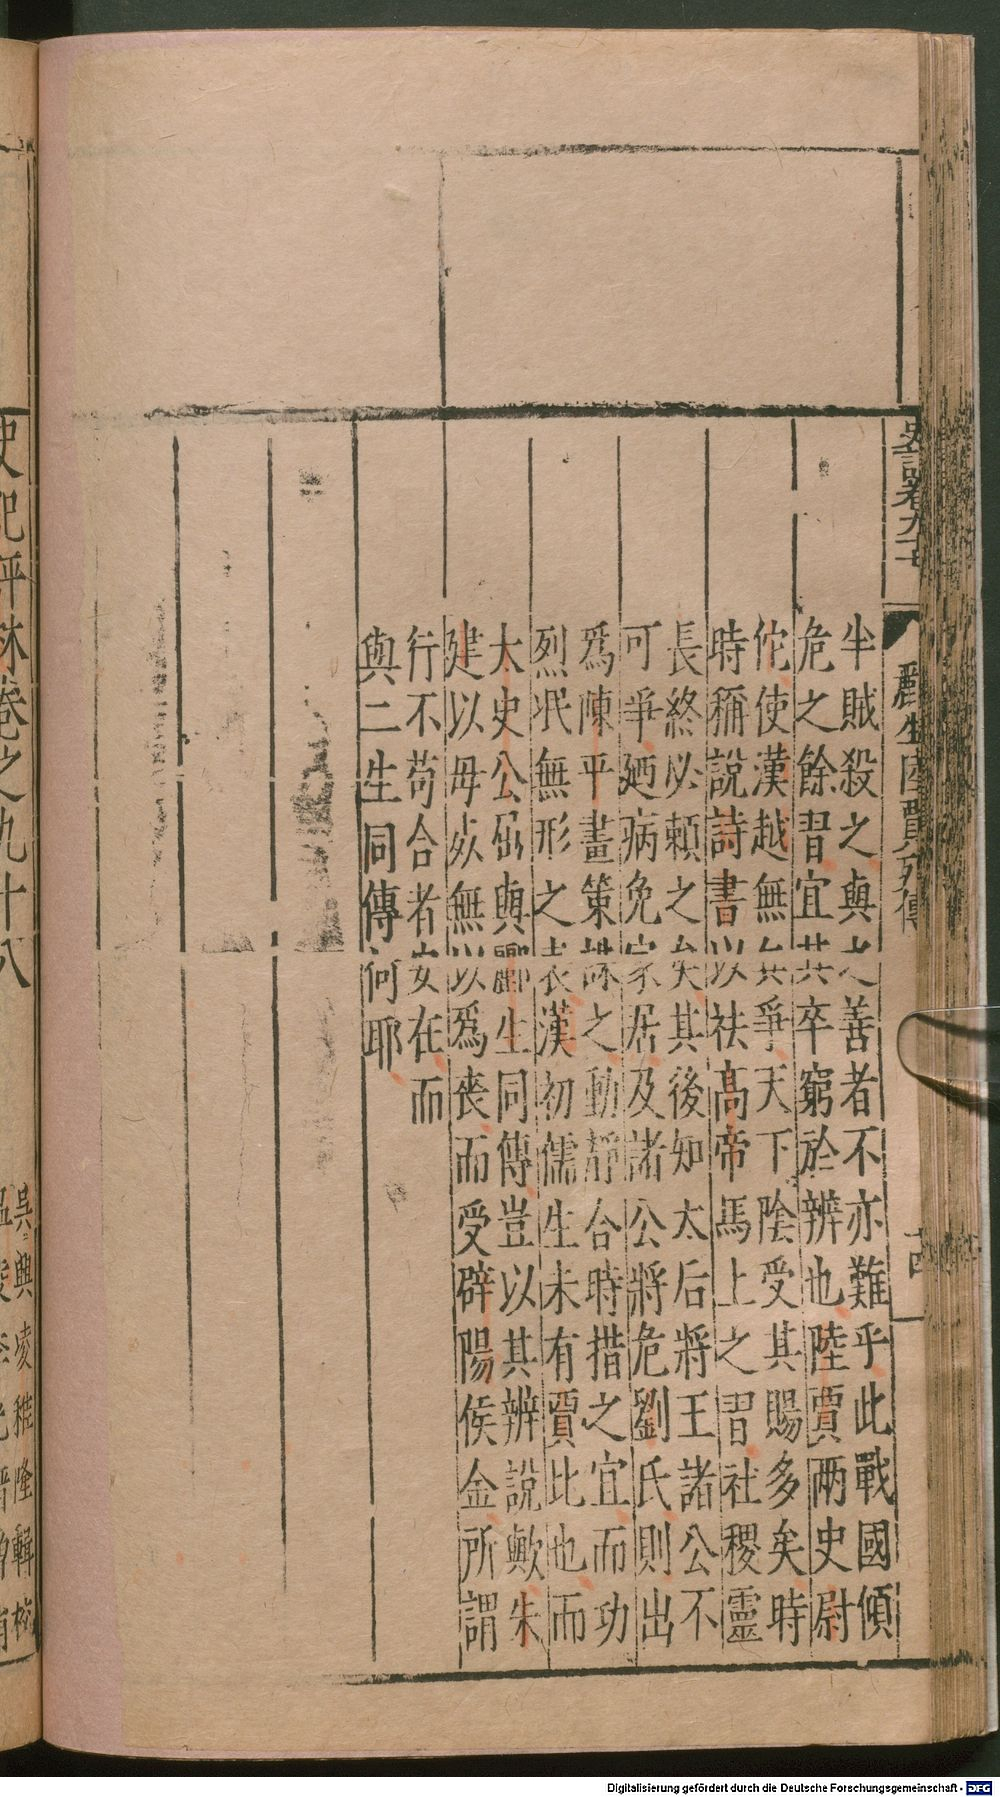 史記卷九十七
酈生陸賈列傳
半賊殺之與之善者不亦難乎此戰國傾
危之餘習宜其卒窮於辨也陸賈兩史尉
佗使漢越無兵爭天下陰受其賜多矣時
時稱說詩書以祛高帝馬上之習社稷靈
長終必賴之矣其後知太后將王諸公不
可爭廼病免家居及諸公將危劉氏則出
爲陳平畫策謀之動靜合時措之宜而功
烈泯無形之表漢初儒生未有賈比也而
太史公屈與酈生同傳豈以其辨說歟朱
建以母歿無以爲喪而受辟陽侯金所謂
行不苟合者安在而
與二生同傳何耶
史記評林卷之九十八
吳興凌稚隆輯校
Digitalisierung gefördert durch die Deutsche Forschungsgemeinschaft - DFG